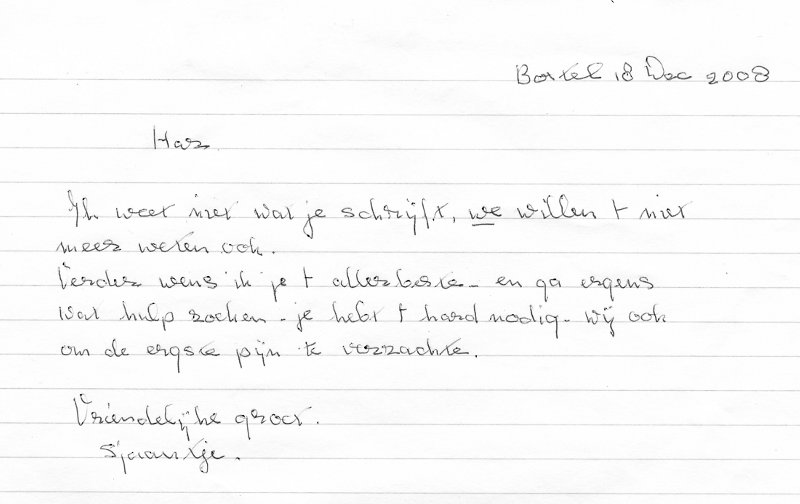 Boxtel 18 Dec 2008
Has
Ik weet niet wat je schrijft, we willen t niet
meer weten ook.
Verder wens ik je t allerbeste - en ga ergens
wat hulp zoeken - je hebt t hard nodig - wij ook
om de ergste pijn te verzachte.
Vriendelijke groet.
Sjaantje.